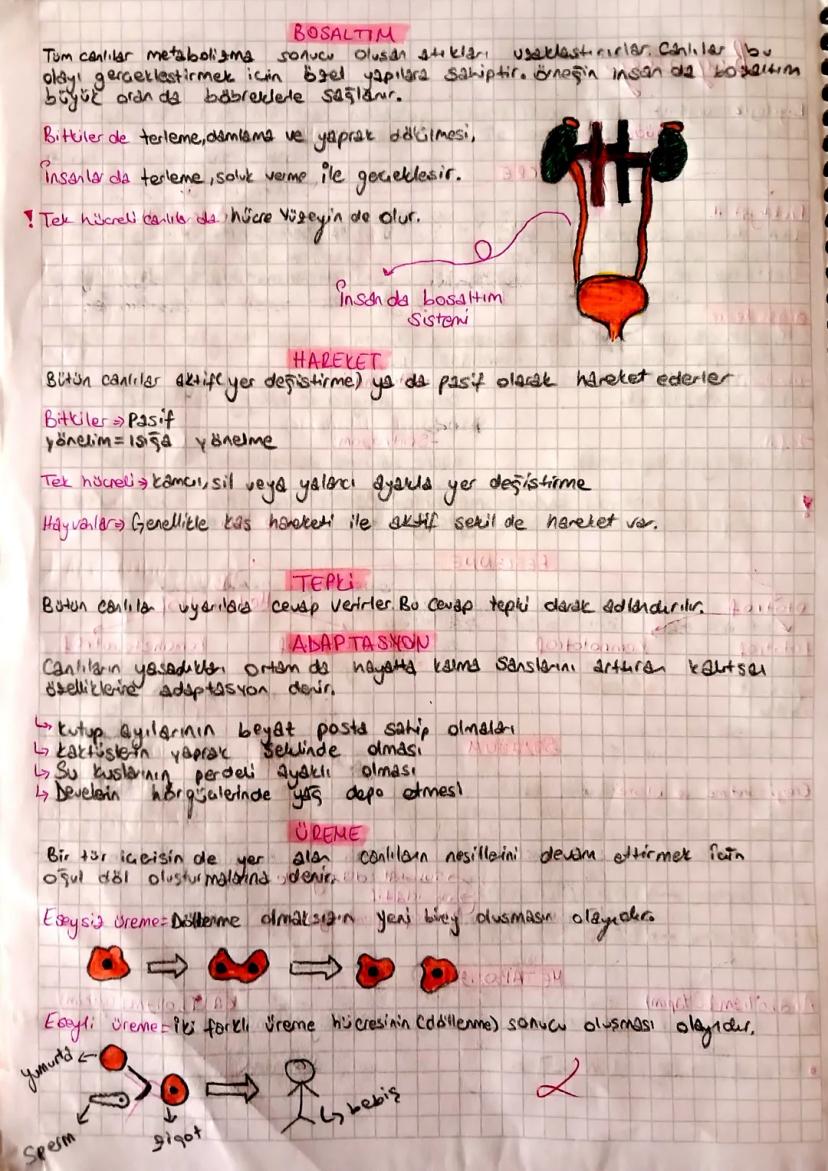 BOSALTIM
Tüm canlılar metabolizma sonucu oluşan atıkları uzaklaştırırlar. Canlılar bu
olayı gerçekleştirmek için özel yapılara sahiptir. örneğin insan da boşaltım
büyük oran da böbreklerle sağlanır.
Bitkiler de terleme, damlama ve yaprak dökülmesi,
İnsanlar da terleme, soluk verme ile gerçekleşir.
! Tek hücreli canlılar da hücre yüzeyin de olur.
İnsan da bosaltım
Sistemi
HAREKET
Bütün canlılar aktif(yer değiştirme) ya da pasif olarak hareket ederler
Bitkiler⇒ Pasif
yönelim= ısığa yönelme
Tek hücreli→ kamcı, sil veya yalancı ayakla yer değiştirme
Hayvanlar⇒ Genellikle kas hareketi ile aktif sekil de hareket var.
TEPKİ
Bütün canlılar uyarılara cevap verirler. Bu cevap tepki olarak adlandırılır.
ADAPTASYON
Canlıların yasadıkları ortam da hayatta kalma sanslarını arttıran kalıtsal
özelliklerine adaptasyon denir.
↳ kutup ayılarının beyat posta sahip olmaları
↳ kaktüslerin yaprak seklinde olması
↳ Su kuslarının perdeli ayaklı olması
↳ Develerin hörgüçlerinde yağ depo etmesi
ÜREME
Bir tür icerisin de yer alan canlıların nesillerini devam ettirmek icin
oğul döl oluşturmalarına denir.
Eseysiz üreme= Döllenme olmaksızın yeni birey olusmasın olayıdır.
Eseyli üreme= İki farklı üreme hücresinin (döllenme) sonucu oluşması olayıdır.
yumurta
Sperm
zigot
bebiş
2